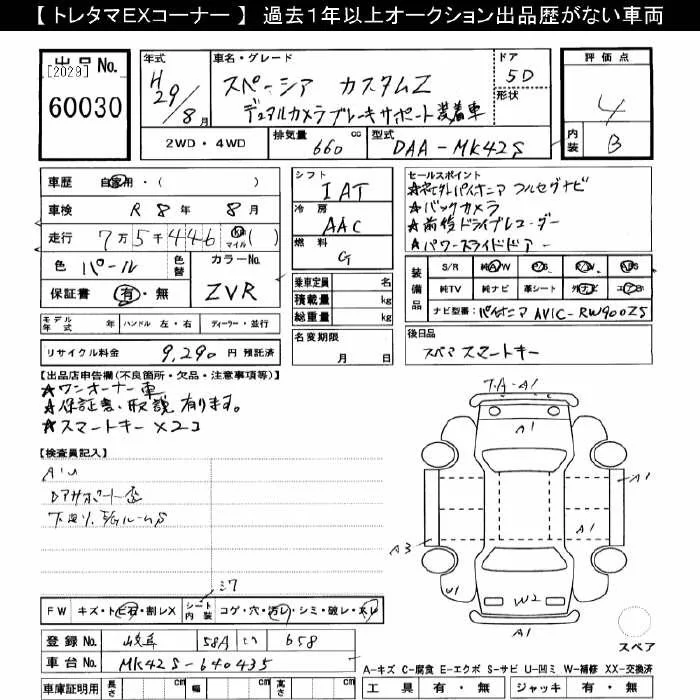 【 トレタマEXコーナー 】 過去1年以上オークション出品歴がない車両
出品No.
[2029]
60030
年式
H29/8月
車名・グレード
スペーシア カスタムZ
デュアルカメラブレーキサポート装着車
ドア
5D
形状
評価点
4
内装
B
2WD・4WD
排気量
660
cc
型式
DAA-MK42S
車歴
自家用・( )
車検
R 8年 8月
走行
7万5千446
Km
マイル
( )
色
パール
色替
カラーNo.
ZVR
保証書
有・無
シフト
IAT
冷房
AAC
燃料
G
乗車定員
名
積載量
kg
総重量
kg
名変期限
月 日
セールスポイント
★社外パイオニア フルセグナビ
★バックカメラ
★前後ドライブレコーダー
★パワースライドドアー
装備品
S/R
純A/W
P/S
P/W
ABS
純TV
純ナビ
革シート
外ナビ
エアB
ナビ型番:
パイオニア AVIC-RW900ZS
モデル年式
年
ハンドル
左・右
ディーラー・並行
リサイクル料金
9,290
円 預託済
後日品
スペア スマートキー
【出品店申告欄(不良箇所・欠品・注意事項等)】
★ワンオーナー車
★保証書、取説 有ります。
★スマートキー×2コ
【検査員記入】
A・U
Dアサポート歪
下廻り、E/GルームS
ミワ
FW
キズ・トビ石・割レX
シート内装
コゲ・穴・汚レ・シミ・破レ・スレ
登録No.
岐阜
58A
658
車台No.
MK42S-640435
車庫証明用
長さ
cm
幅
cm
高さ
cm
T.A-A1
A1
A1
A1
A3
U1
W2
A1
スペア
A-キズ C-腐食 E-エクボ S-サビ U-凹ミ W-補修 XX-交換済
工具
有・無
ジャッキ
有・無